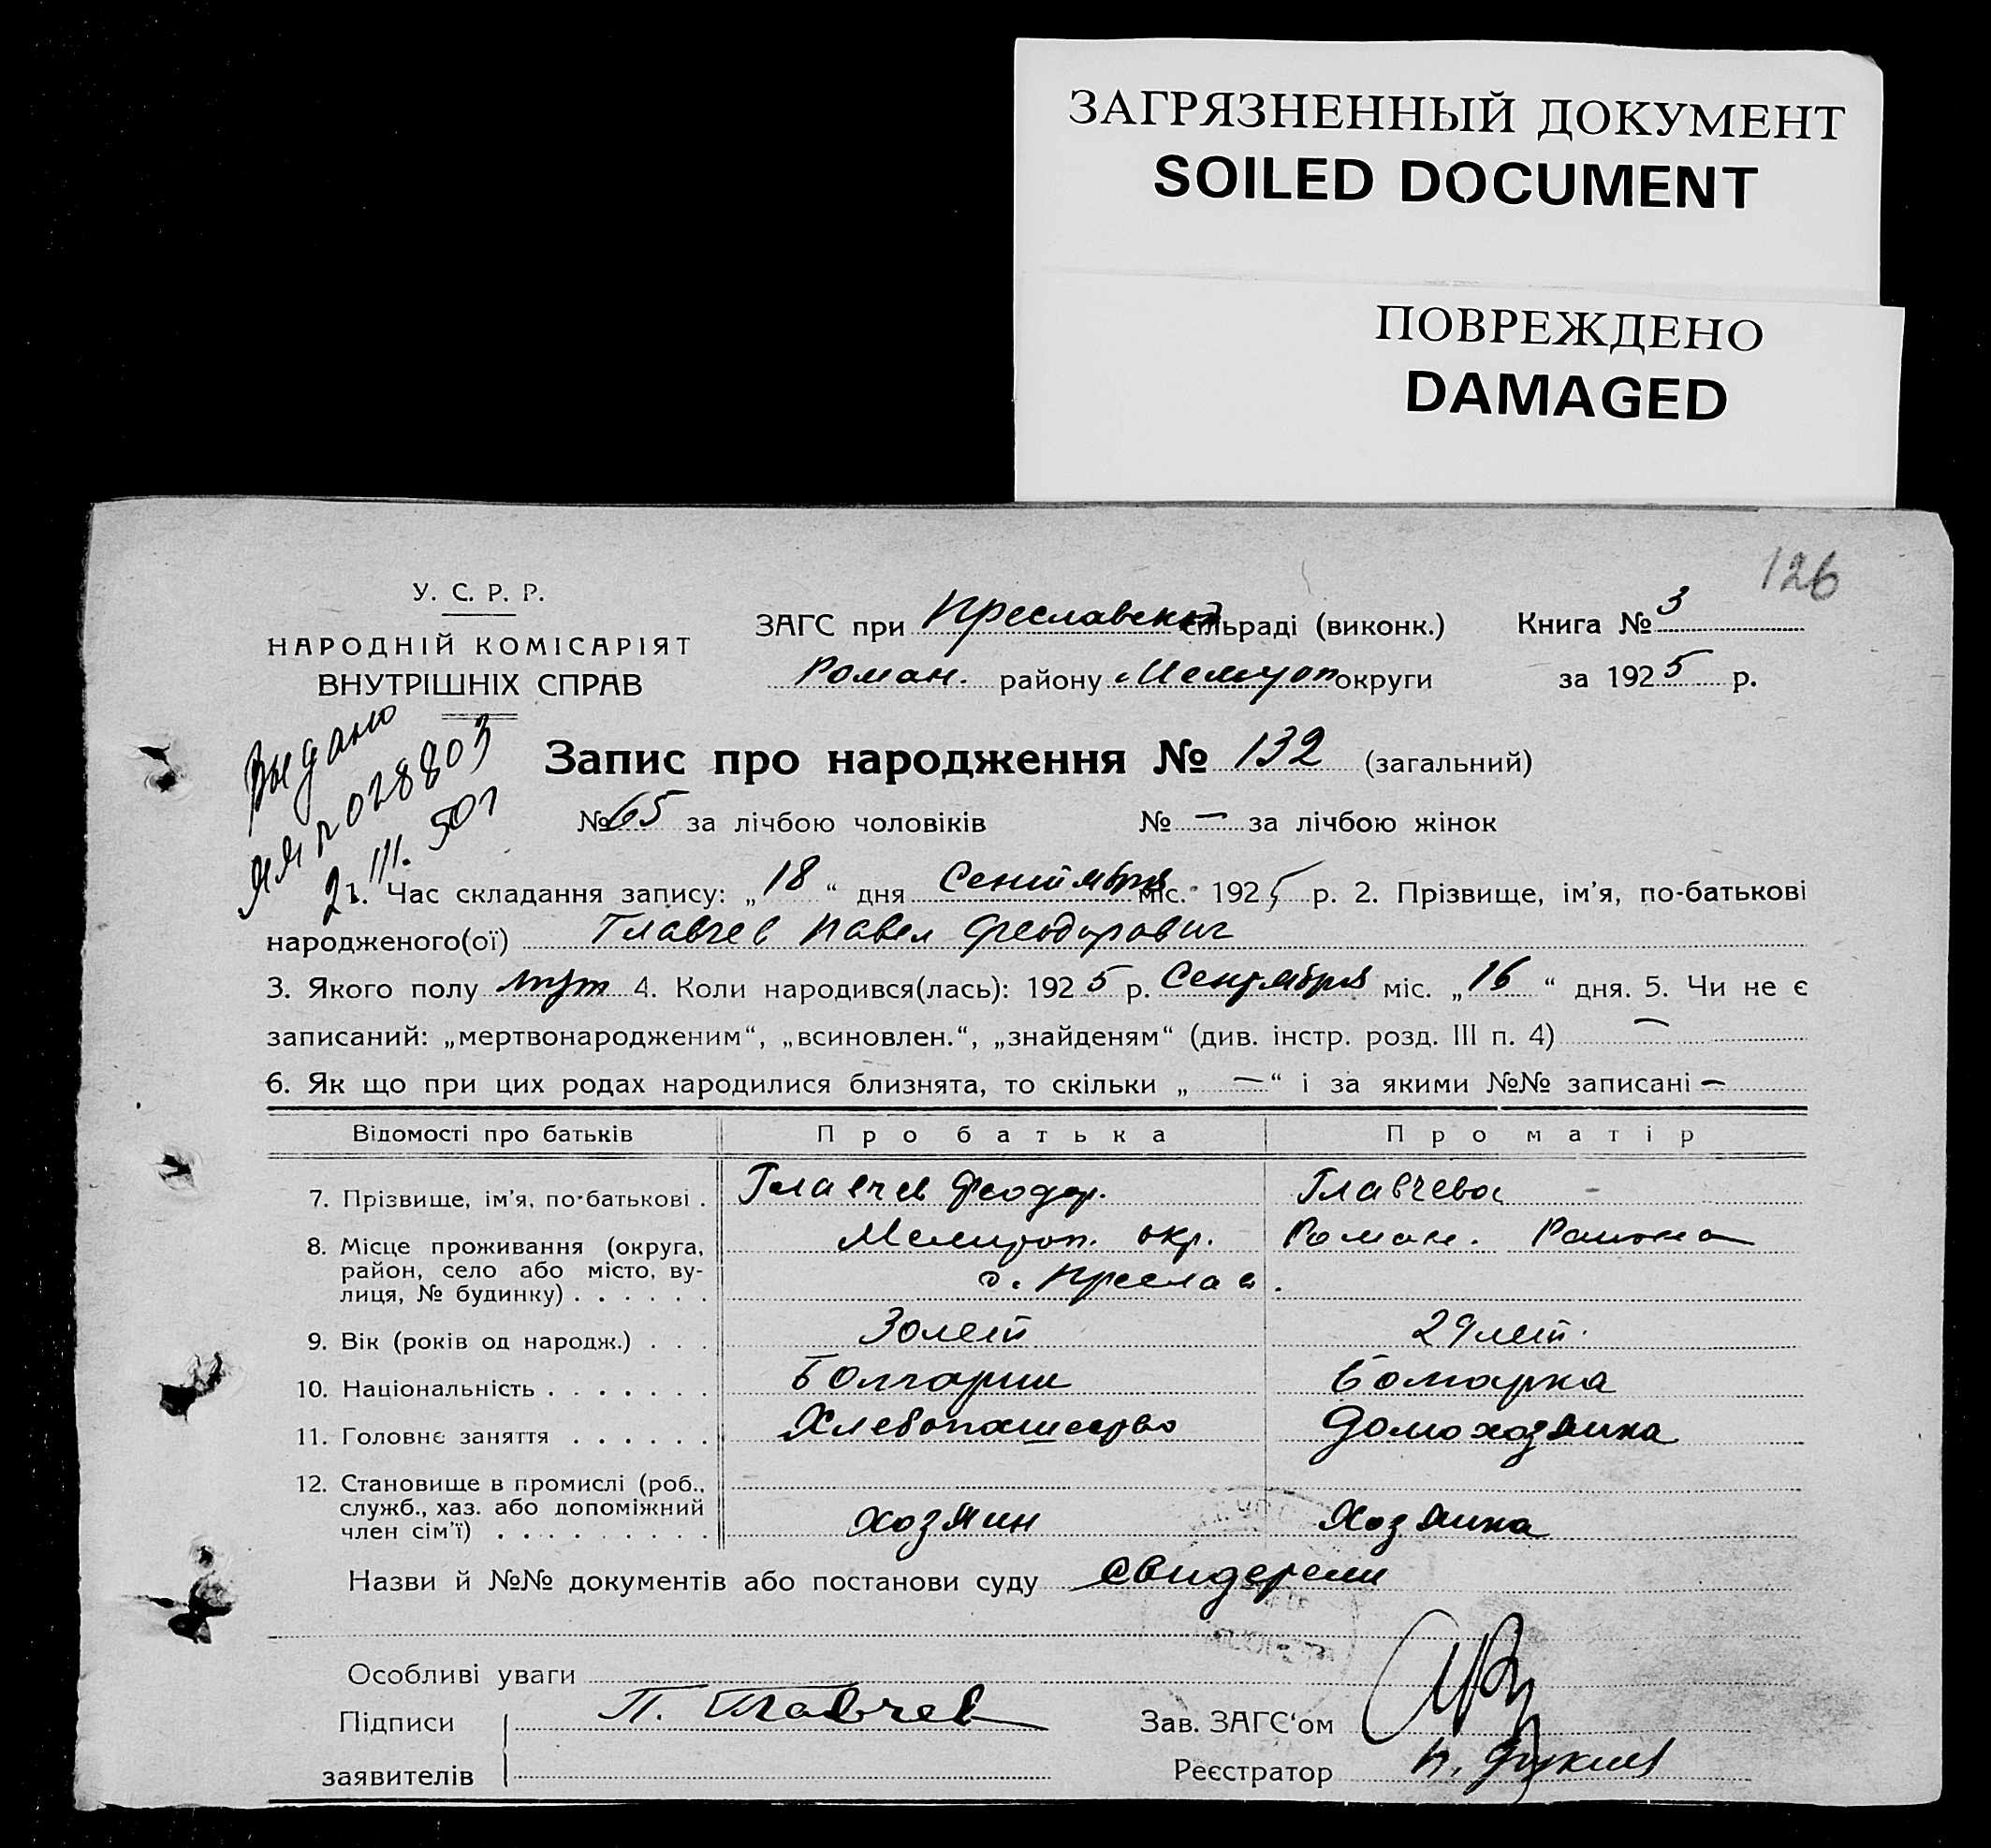 ЗАГРЯЗНЕННЫЙ ДОКУМЕНТ
SOILED DOCUMENT
ПОВРЕЖДЕНО
DAMAGED
126
У. С. Р. Р.
НАРОДНІЙ КОМІСАРІЯТ
ВНУТРІШНІХ СПРАВ
ЗАГС при Преславской сільраді (виконк.)
Роман. району Мелітоп округи
Книга № 3
за 1925 р.
Выдано
028803
2. III. 50г
Запис про народження № 132 (загальний)
№ 65 за лічбою чоловіків № — за лічбою жінок
1. Час складання запису: „18“ дня Сентября міс. 1925 р. 2. Прізвище, ім'я, по-батькові
народженого(ої) Главчев Павел Феодорович
3. Якого полу муж 4. Коли народився(лась): 1925 р. Сентября міс. „16“ дня. 5. Чи не є
записаний: „мертвонародженим“, „всиновлен.“, „знайденям“ (див. інстр. розд. III п. 4) —
6. Як що при цих родах народилися близнята, то скільки „—“ і за якими №№ записані —
Відомості про батьків Про батька Про матір
7. Прізвище, ім'я, по-батькові . Главчев Феодор. Главчева
8. Місце проживання (округа, Мелитоп. окр. Роман. Района
район, село або місто, ву- с. Преслав.
лиця, № будинку) . . . . . .
9. Вік (років од народж.) . . . 30 лет 29 лет.
10. Національність . . . . . . . Болгарин Болгарка
11. Головнє заняття . . . . . . Хлебопашество Домохозяйка
12. Становище в промислі (роб.,
служб., хаз. або допоміжний хозяин Хозяйка
член сім'ї) . . . . . . . . .
Назви й №№ документів або постанови суду
Особливі уваги
Підписи П. Главчев Зав. ЗАГС'ом
заявителів Реєстратор